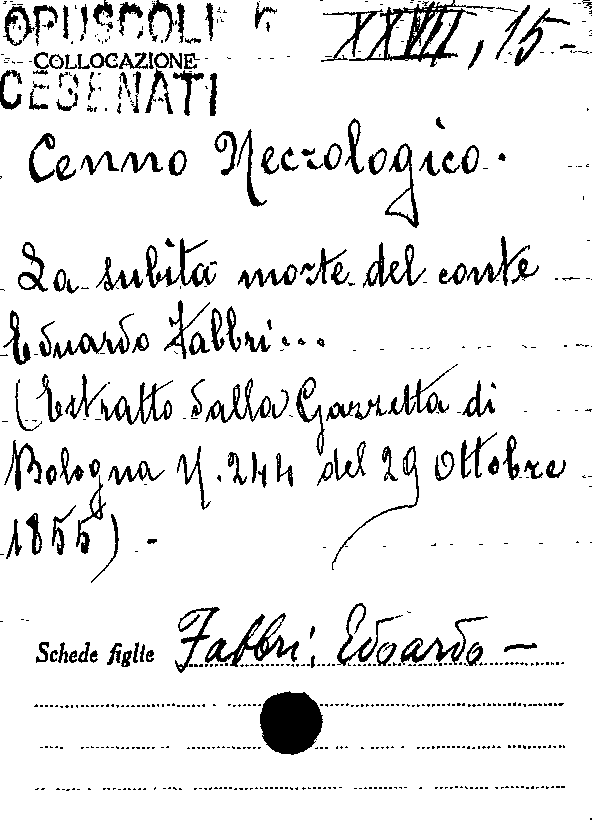 OPUSCOLI
XXVII, 15-
COLLOCAZIONE
CESENATI
Cenno Necrologico.
La subita morte del conte
Eduardo Fabbri...
(Estratto dalla Gazzetta di
Bologna N. 244 del 29 Ottobre
1855) -
Schede figlie Fabbri, Edoardo -